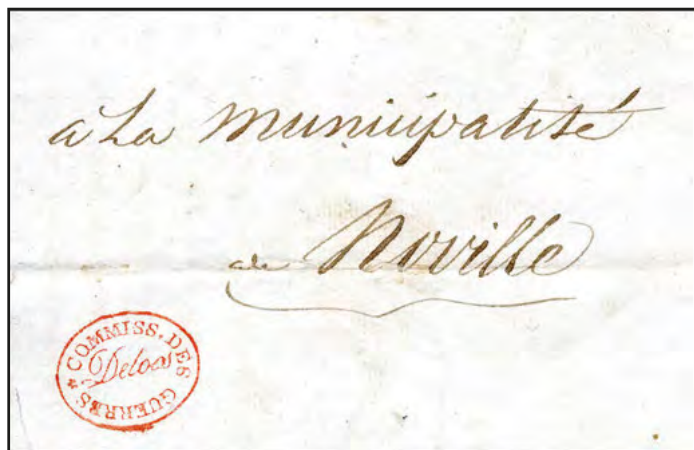 a La Municipalité
de Noville
COMMISS. DES GUERRES *
Deloes